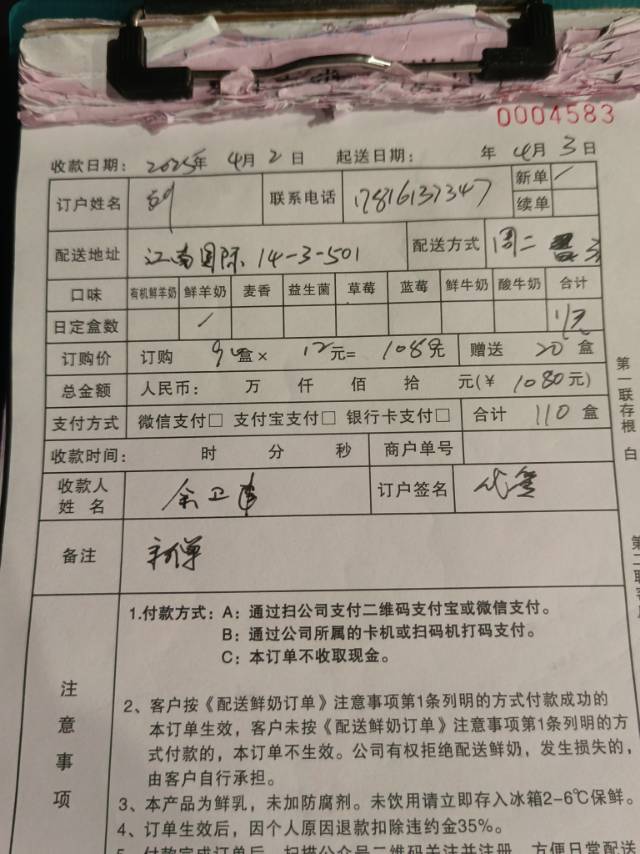 0004583
收款日期： 2025年 4月 2日 起送日期： 年 4月 3日
订户姓名 刘 联系电话 17816137347 新单 /
续单
配送地址 江南国际 14-3-501 配送方式 周二
口味 有机鲜羊奶 鲜羊奶 麦香 益生菌 草莓 蓝莓 鲜牛奶 酸牛奶 合计
日定盒数 /
订购价 订购 90盒× 12元= 1080元 赠送 20 盒
总金额 人民币： 万 仟 佰 拾 元(￥ 1080元)
支付方式 微信支付□ 支付宝支付□ 银行卡支付□ 合计 110 盒
收款时间： 时 分 秒 商户单号
收款人姓名 余卫 订户签名 代签
备注 新单
第一联存根 白
第二联客
注意事项
1.付款方式：A：通过扫公司支付二维码支付宝或微信支付。
B：通过公司所属的卡机或扫码机打码支付。
C：本订单不收取现金。
2、客户按《配送鲜奶订单》注意事项第1条列明的方式付款成功的
本订单生效，客户未按《配送鲜奶订单》注意事项第1条列明的方
式付款的，本订单不生效。公司有权拒绝配送鲜奶，发生损失的，
由客户自行承担。
3、本产品为鲜乳，未加防腐剂。未饮用请立即存入冰箱2-6℃保鲜。
4、订单生效后，因个人原因退款扣除违约金35%。
5、付款完成订单后，扫描公众号二维码关注并注册，方便日常配送